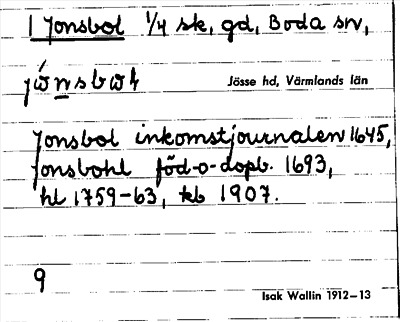 1 Jonsbol 1/4 sk, gd, Boda sn,
Jösse hd, Värmlands län
Jonsbol inkomstjournalen 1645,
Jonsbohl föd-o-dopb. 1693,
hl 1759-63, kb 1907.
9
Isak Wallin 1912-13